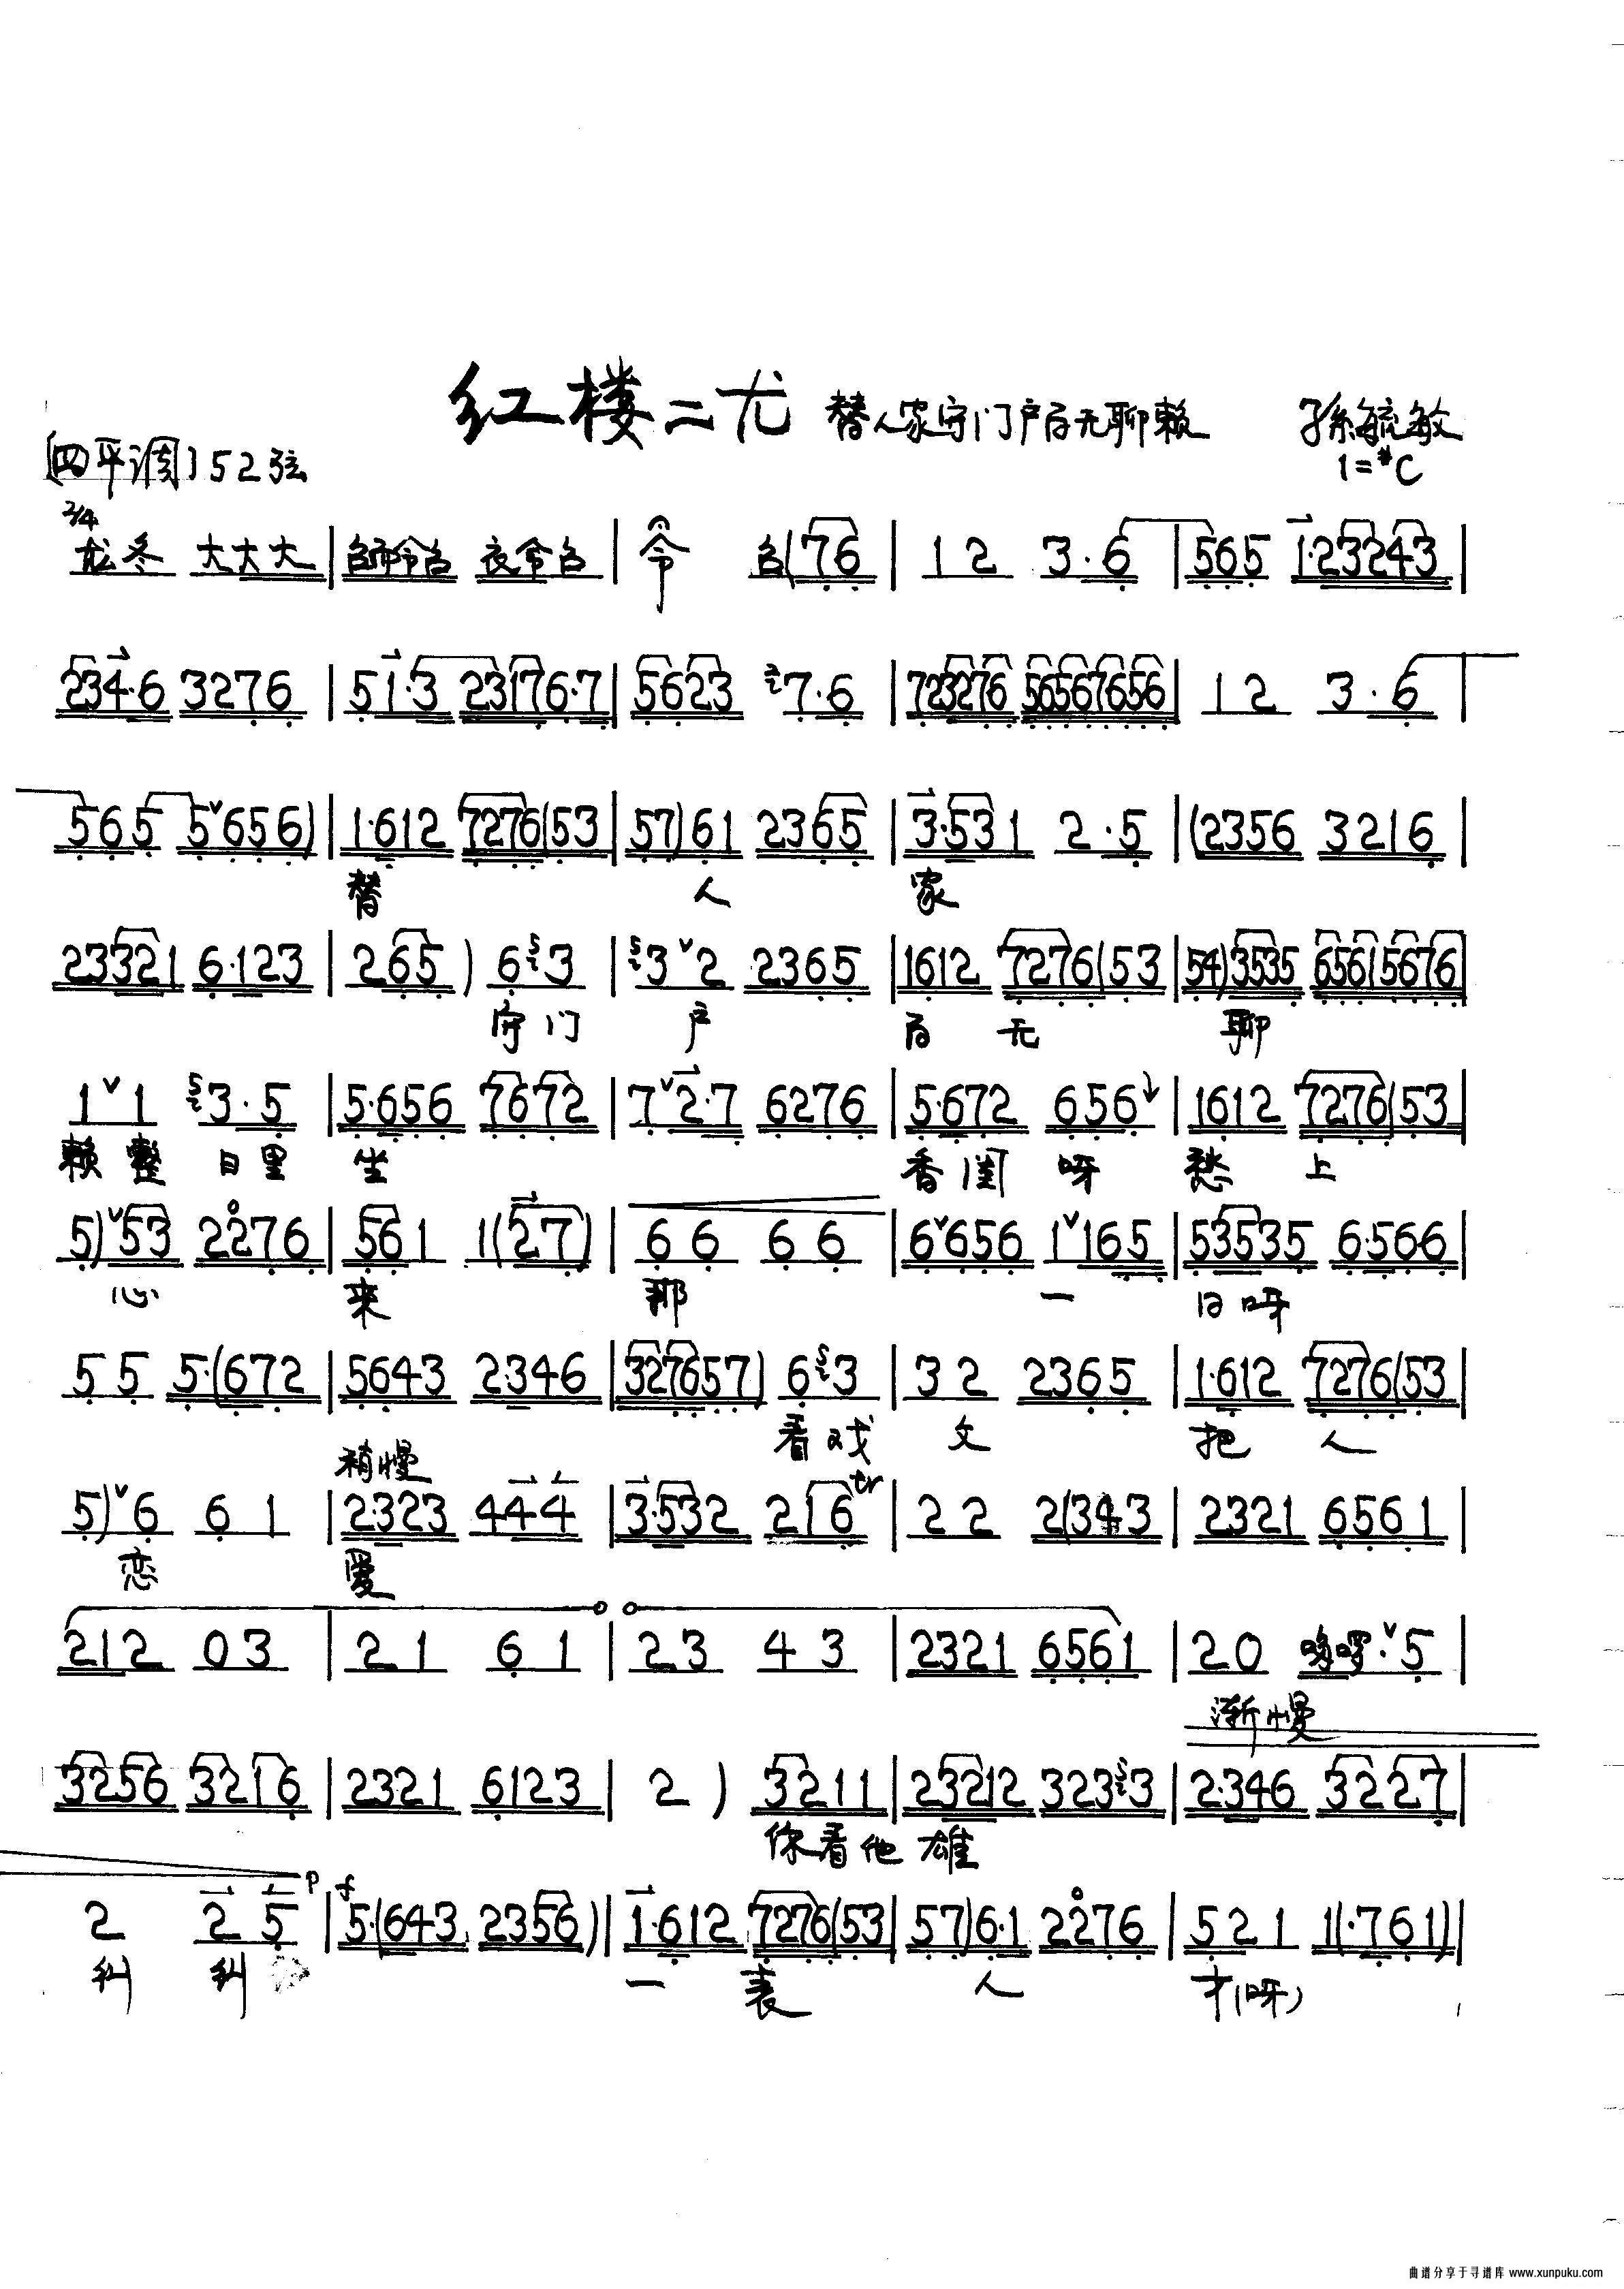 红楼二尤 替人家守门户百无聊赖 孙毓敏
[四平调] 52弦 1=#C
2/4
龙冬 大大大 | 台 令台 夜令台 | 令 台(76 | 12 3·6 | 565 1·23243 |
234·6 3276 | 51·3 23176·7 | 5623 7·6 | 723276 56567656 | 12 3·6 |
565 5ˇ656) | 1·612 7276(53 | 57)61 2365 | 3·531 2·5 | (2356 3216 |
替 人 家
23321 6·123 | 265) 6 3 | 3ˇ2 2365 | 1612 7276(53 | 54)3535 65615676 |
守门 户 百 无 聊
1ˇ1 3·5 | 5·656 7672 | 7ˇ2·7 6276 | 5·672 656 | 1612 7276(53 |
赖 整 日里 坐 香闺 呀 愁 上
5)ˇ53 2276 | 561 1(27) | 66 66 | 6ˇ656 1ˇ165 | 53535 6·566 |
心 来 那 一 日呀
55 5·(672 | 5643 2·346 | 327657) 6 3 | 32 2365 | 1·612 7276(53 |
看戏 文 把 人
稍慢
5)ˇ6 61 | 2·323 444 | 3·532 216 tr | 22 2(343 | 2321 6561 |
恋 爱
212 03 | 21 61 | 23 43 | 2321 6561 | 20 哆啰·ˇ5 |
渐慢
3256 3216 | 2321 6123 | 2 ) 3211 | 23212 323 3 | 2·346 3227 |
你看他 雄
2 25 p | f 5·(643 2356) | 1·612 7276(53 | 57)6·1 2276 | 521 1(·761) |
纠 纠 一 表 人 才(呀)
曲谱分享于寻谱库 www.xunpuku.com